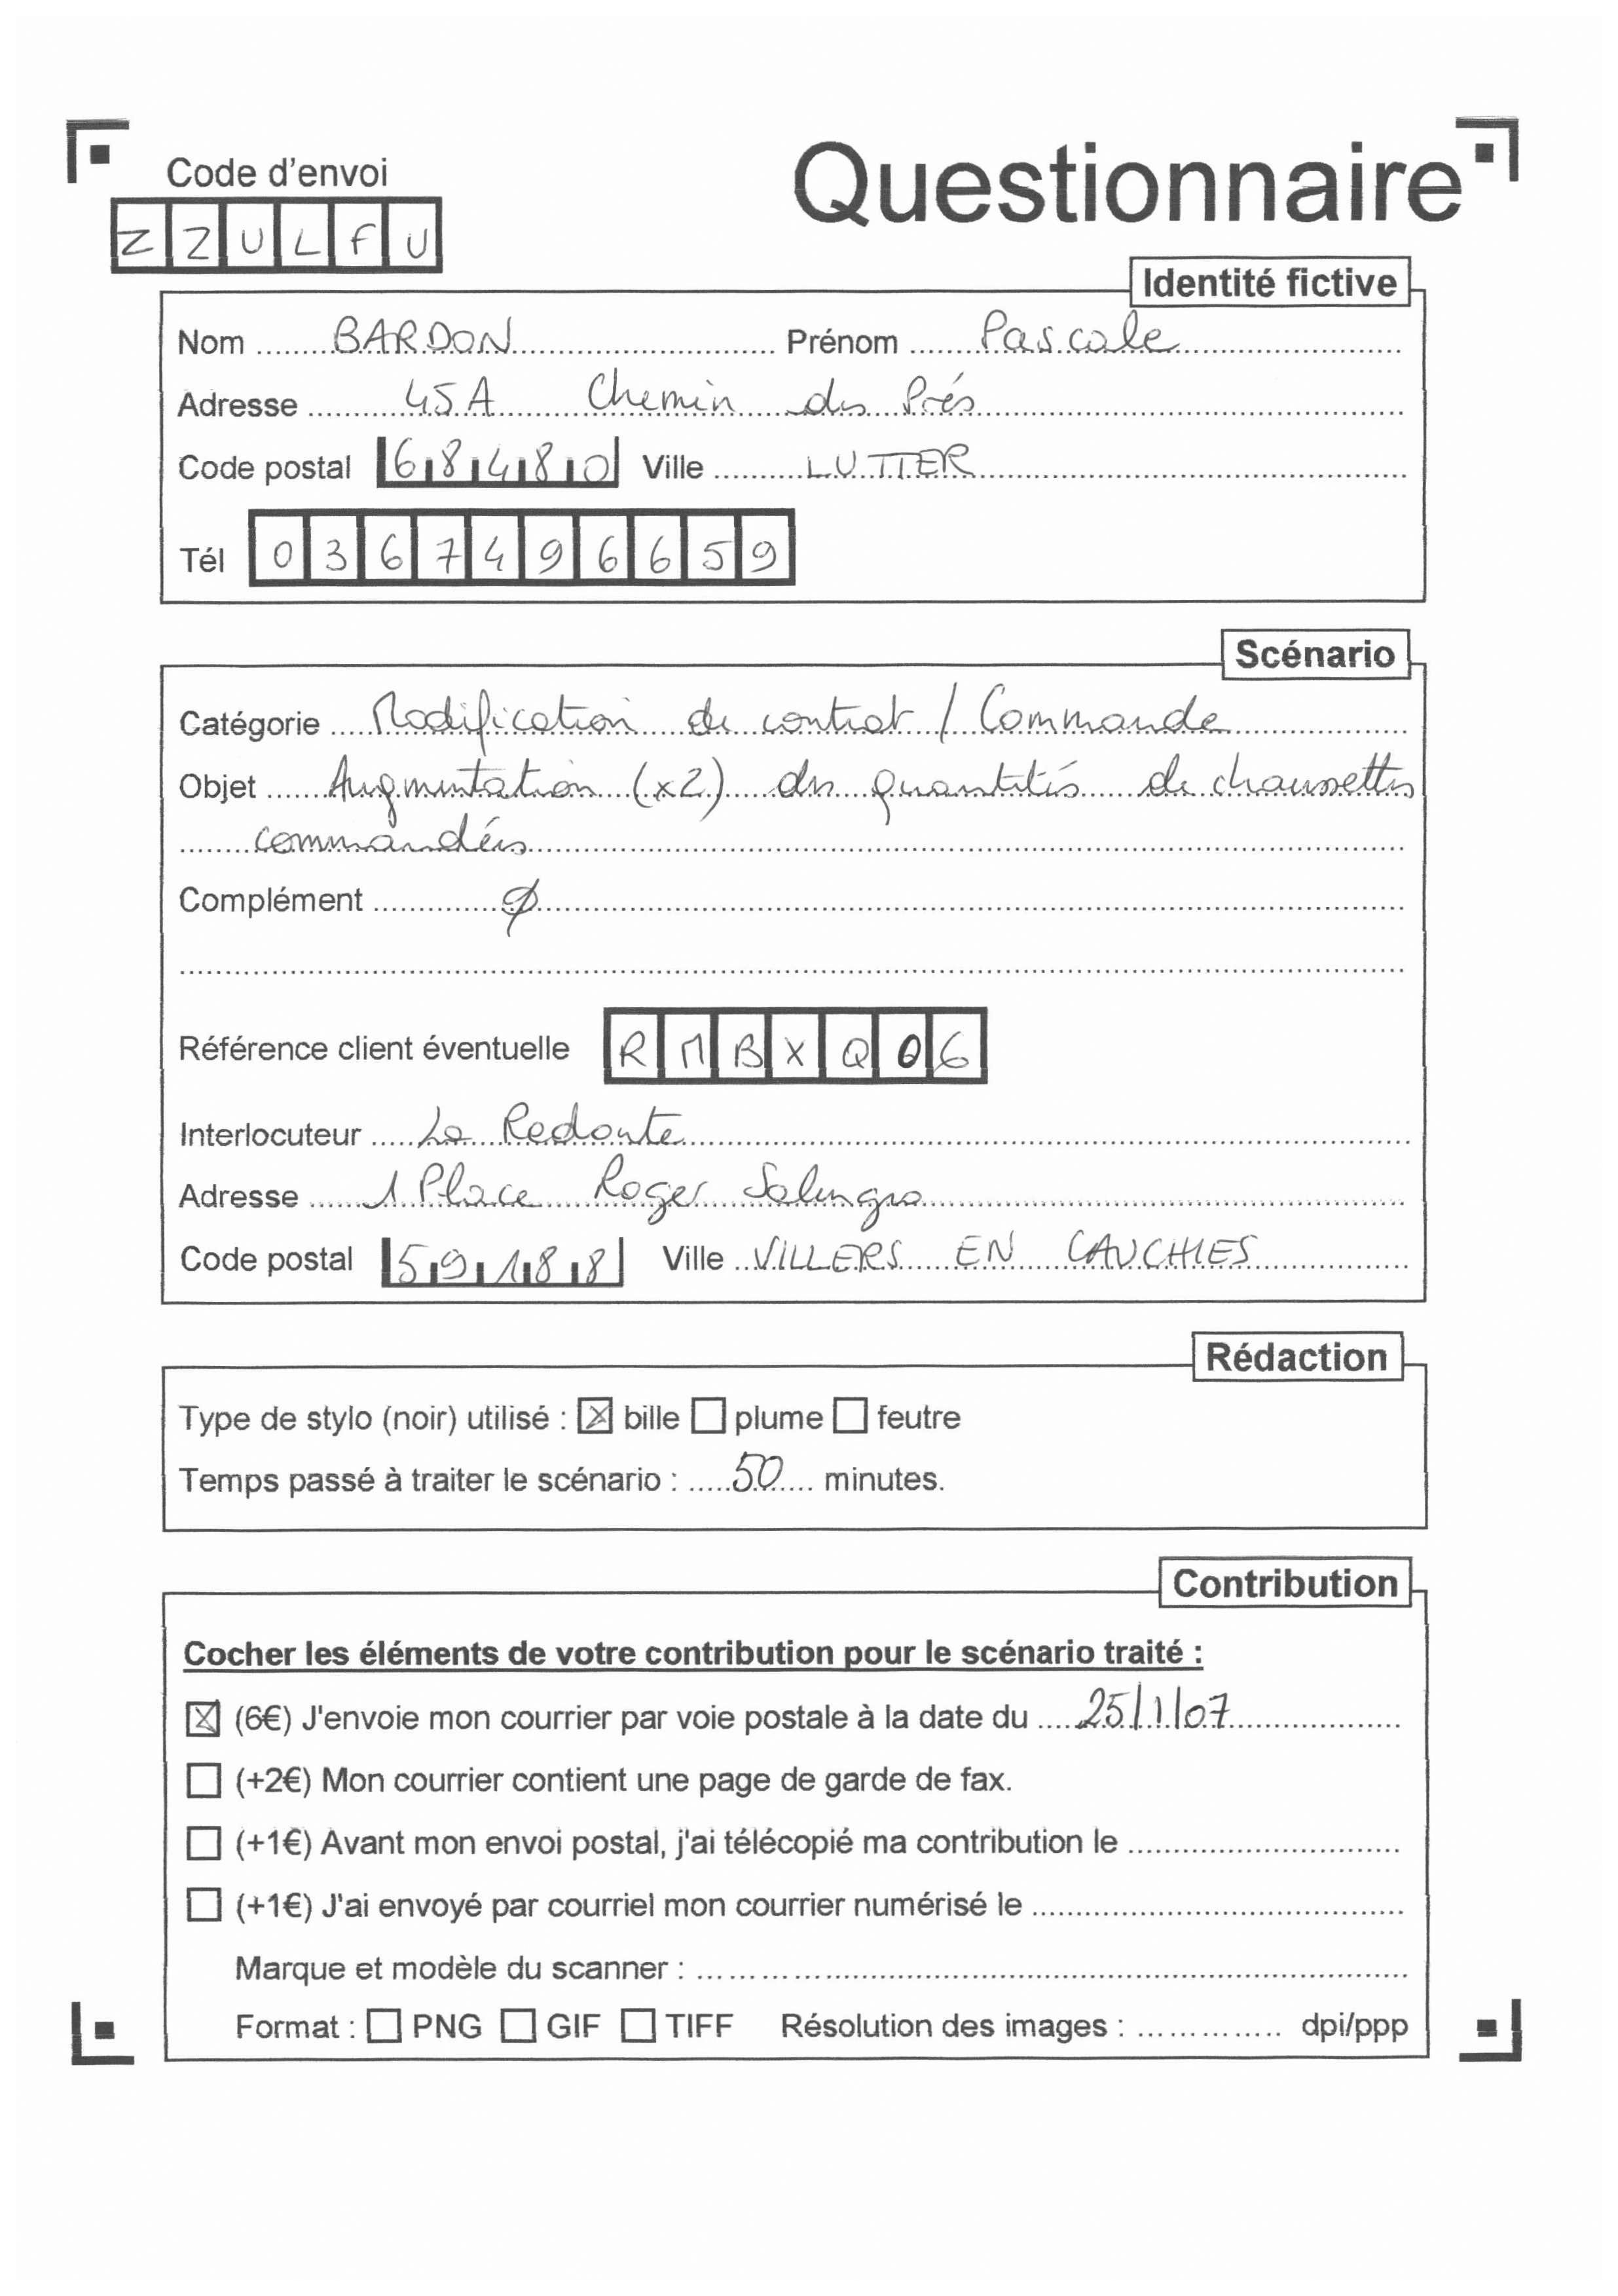 Code d'envoi
Questionnaire
ZZULFU
Identité fictive
Nom ........BARDON........ Prénom ........Pascale........
Adresse ........45A Chemin des Prés........
Code postal 68480 Ville ........LUTTER........
Tél 0367496659
Scénario
Catégorie .....Modification de contrat / Commande.....
Objet ......Augmentation (x2) des quantités de chaussettes
.......commandées.......
Complément .............ϕ.............
Référence client éventuelle RMBXQ06
Interlocuteur .....La Redoute.....
Adresse ......1 Place Roger Salengro......
Code postal 59188 Ville ..VILLERS EN CAUCHIES..
Rédaction
Type de stylo (noir) utilisé : ☒ bille ☐ plume ☐ feutre
Temps passé à traiter le scénario : .....50.... minutes.
Contribution
Cocher les éléments de votre contribution pour le scénario traité :
☒ (6€) J'envoie mon courrier par voie postale à la date du ....25/1/07....
☐ (+2€) Mon courrier contient une page de garde de fax.
☐ (+1€) Avant mon envoi postal, j'ai télécopié ma contribution le ............
☐ (+1€) J'ai envoyé par courriel mon courrier numérisé le ............
Marque et modèle du scanner : ............
Format : ☐ PNG ☐ GIF ☐ TIFF Résolution des images : .............. dpi/ppp